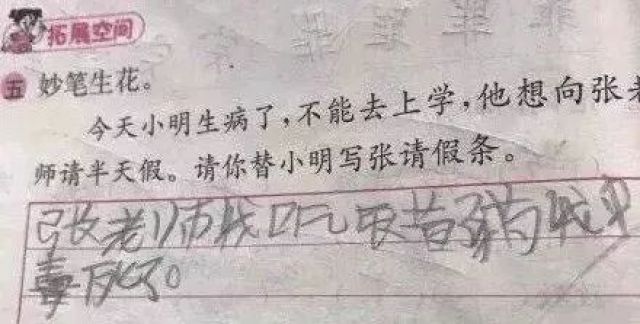 拓展空间
五 妙笔生花。
今天小明生病了,不能去上学,他想向张老
师请半天假。请你替小明写张请假条。
张老师我吃药我中
毒死了。